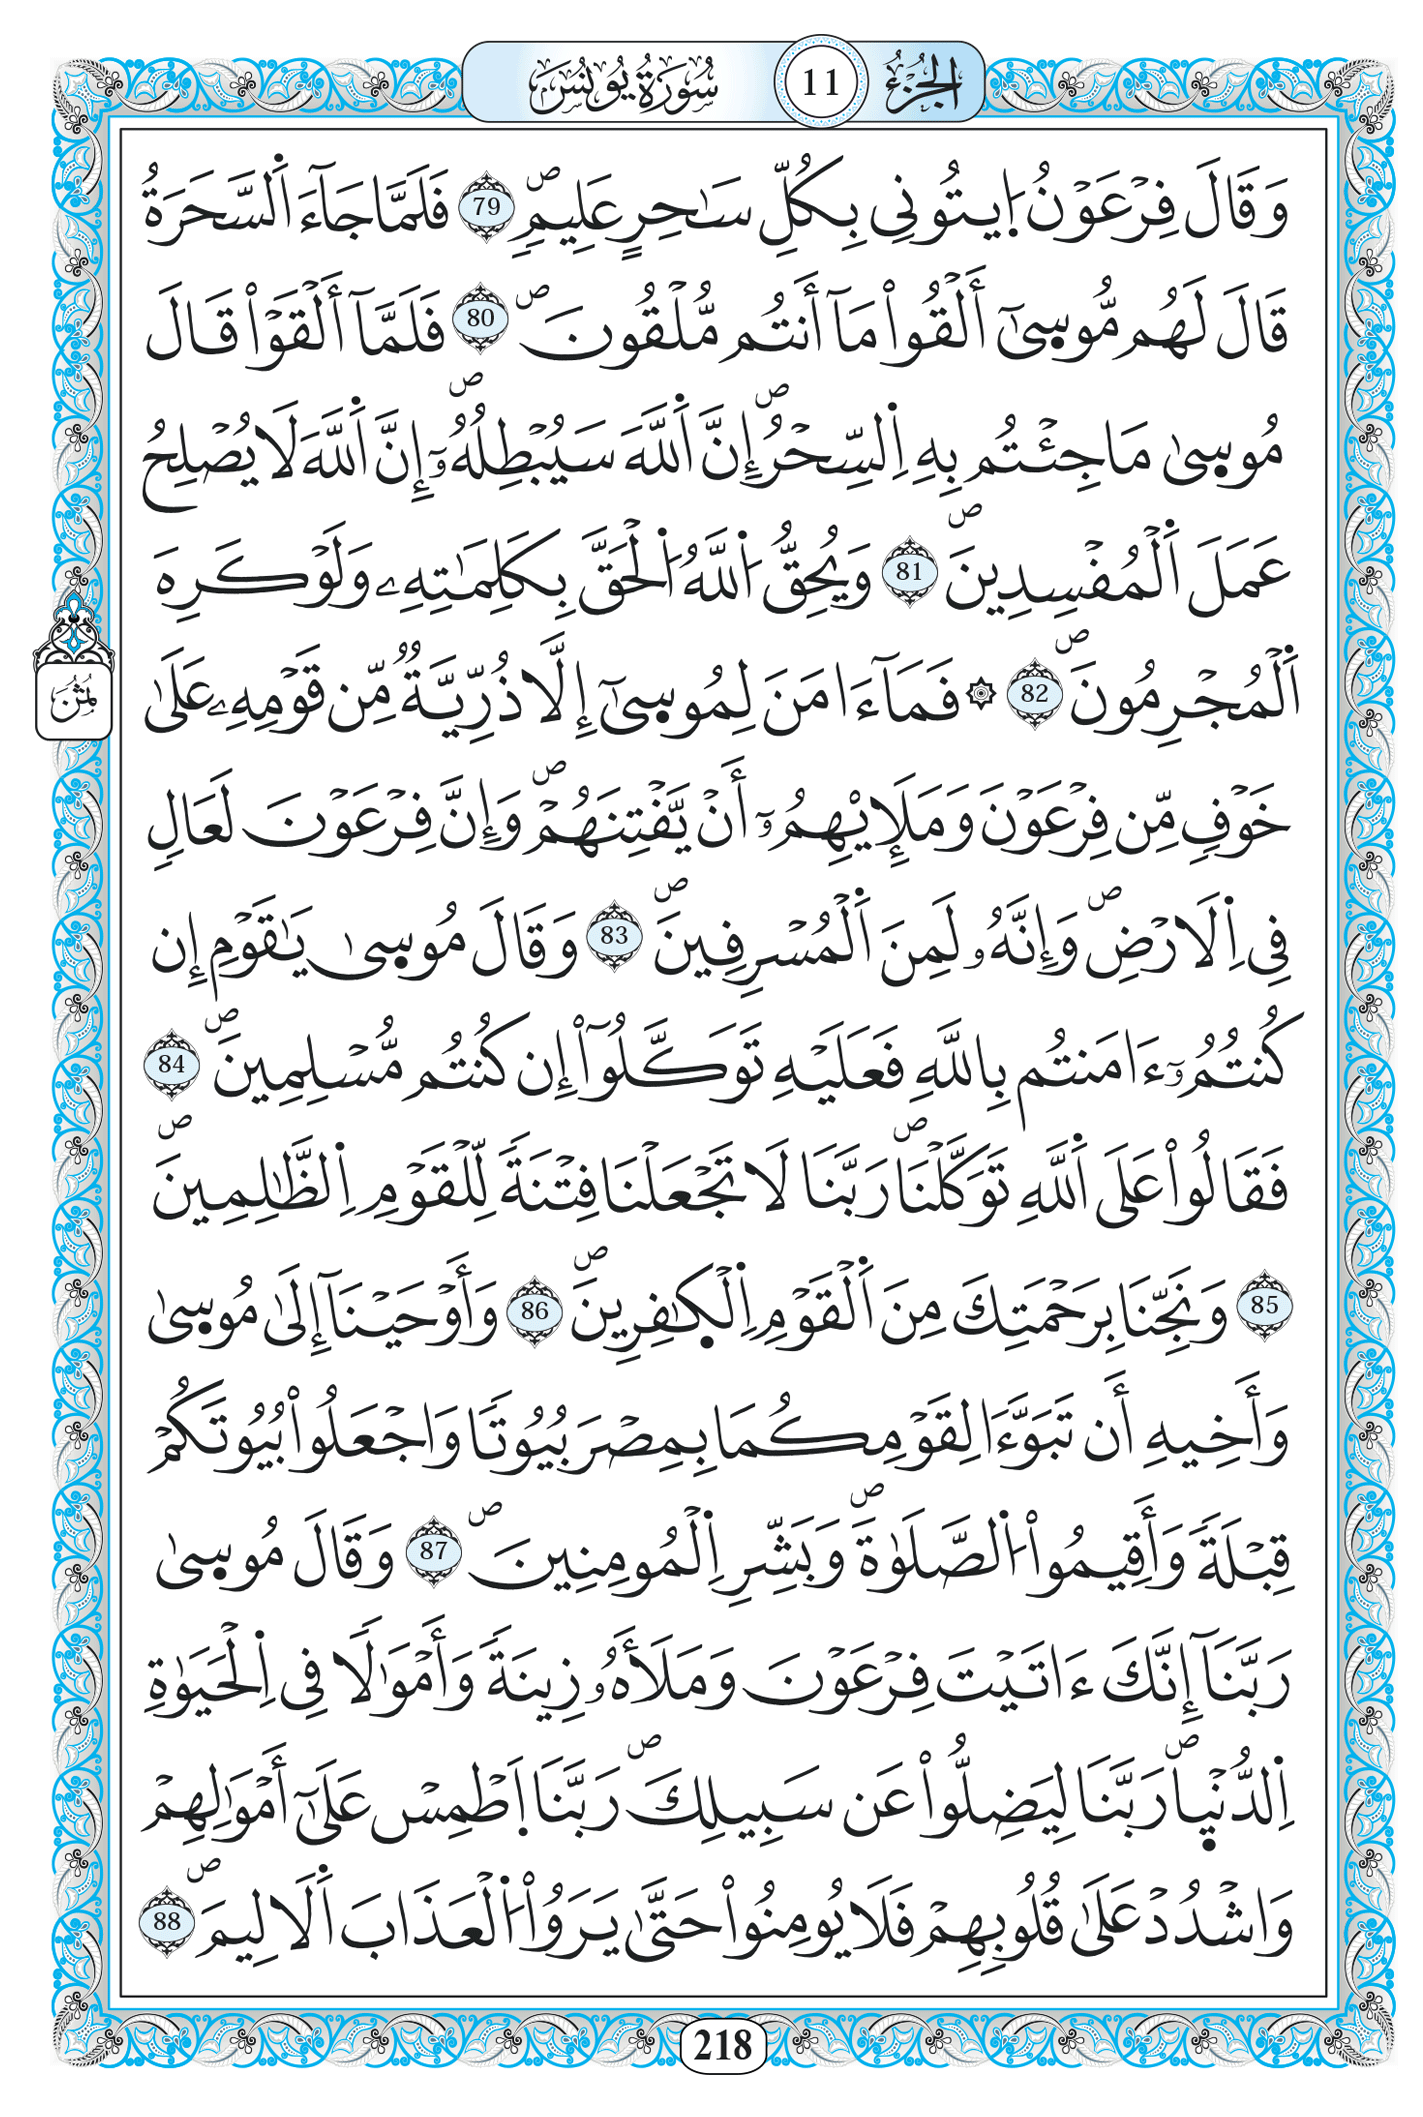 الجزء 11 سورة يونس
وَقَالَ فِرْعَوْنُ اُ۪يتُونِے بِكُلِّ سَٰحِرٍ عَلِيمٖۖ 79 فَلَمَّا جَآءَ اَ۬لسَّحَرَةُ
قَالَ لَهُم مُّوس۪يٰٓ أَلْقُواْ مَآ أَنتُم مُّلْقُونَۖ 80 فَلَمَّآ أَلْقَوْاْ قَالَ
مُوس۪يٰ مَا جِئْتُم بِهِ اِ۬لسِّحْرُۖ إِنَّ اَ۬للَّهَ سَيُبْطِلُهُۥٓۖ إِنَّ اَ۬للَّهَ لَا يُصْلِحُ
عَمَلَ اَ۬لْمُفْسِدِينَۖ 81 وَيُحِقُّ اُ۬للَّهُ اُ۬لْحَقَّ بِكَلِمَٰتِهِۦ وَلَوْ كَرِهَ
اَ۬لْمُجْرِمُونَۖ 82 ۞ فَمَآ ءَامَنَ لِمُوس۪يٰٓ إِلَّا ذُرِّيَّةٞ مِّن قَوْمِهِۦ عَلَيٰ
خَوْفٖ مِّن فِرْعَوْنَ وَمَلَإِيْهِمُۥٓ أَنْ يَّفْتِنَهُمْۖ وَإِنَّ فِرْعَوْنَ لَعَالٖ
فِے اِ۬لَارْضِۖ وَإِنَّهُۥ لَمِنَ اَ۬لْمُسْرِفِينَۖ 83 وَقَالَ مُوس۪يٰ يَٰقَوْمِ إِن
كُنتُمُۥٓ ءَامَنتُم بِاللَّهِ فَعَلَيْهِ تَوَكَّلُوٓاْ إِن كُنتُم مُّسْلِمِينَۖ 84
فَقَالُواْ عَلَي اَ۬للَّهِ تَوَكَّلْنَاۖ رَبَّنَا لَا تَجْعَلْنَا فِتْنَةٗ لِّلْقَوْمِ اِ۬لظَّٰلِمِينَۖ
85 وَنَجِّنَا بِرَحْمَتِكَ مِنَ اَ۬لْقَوْمِ اِ۬لْكٰ۪فِرِينَۖ 86 وَأَوْحَيْنَآ إِلَيٰ مُوس۪يٰ
وَأَخِيهِ أَن تَبَوَّءَا لِقَوْمِكُمَا بِمِصْرَ بُيُوتٗا وَاجْعَلُواْ بُيُوتَكُمْ
قِبْلَةٗ وَأَقِيمُواْ اُ۬لصَّلَوٰةَۖ وَبَشِّرِ اِ۬لْمُومِنِينَۖ 87 وَقَالَ مُوس۪يٰ
رَبَّنَآ إِنَّكَ ءَاتَيْتَ فِرْعَوْنَ وَمَلَأَهُۥ زِينَةٗ وَأَمْوَٰلٗا فِے اِ۬لْحَيَوٰةِ
اِ۬لدُّنْي۪اۖ رَبَّنَا لِيَضِلُّواْ عَن سَبِيلِكَۖ رَبَّنَا اَ۪طْمِسْ عَلَيٰٓ أَمْوَٰلِهِمْ
وَاشْدُدْ عَلَيٰ قُلُوبِهِمْ فَلَا يُومِنُواْ حَتَّيٰ يَرَوُاْ اُ۬لْعَذَابَ اَ۬لَالِيمَۖ 88
ثُمُن
218